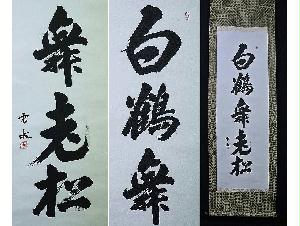 舞老松
白鶴舞
白鶴舞老松